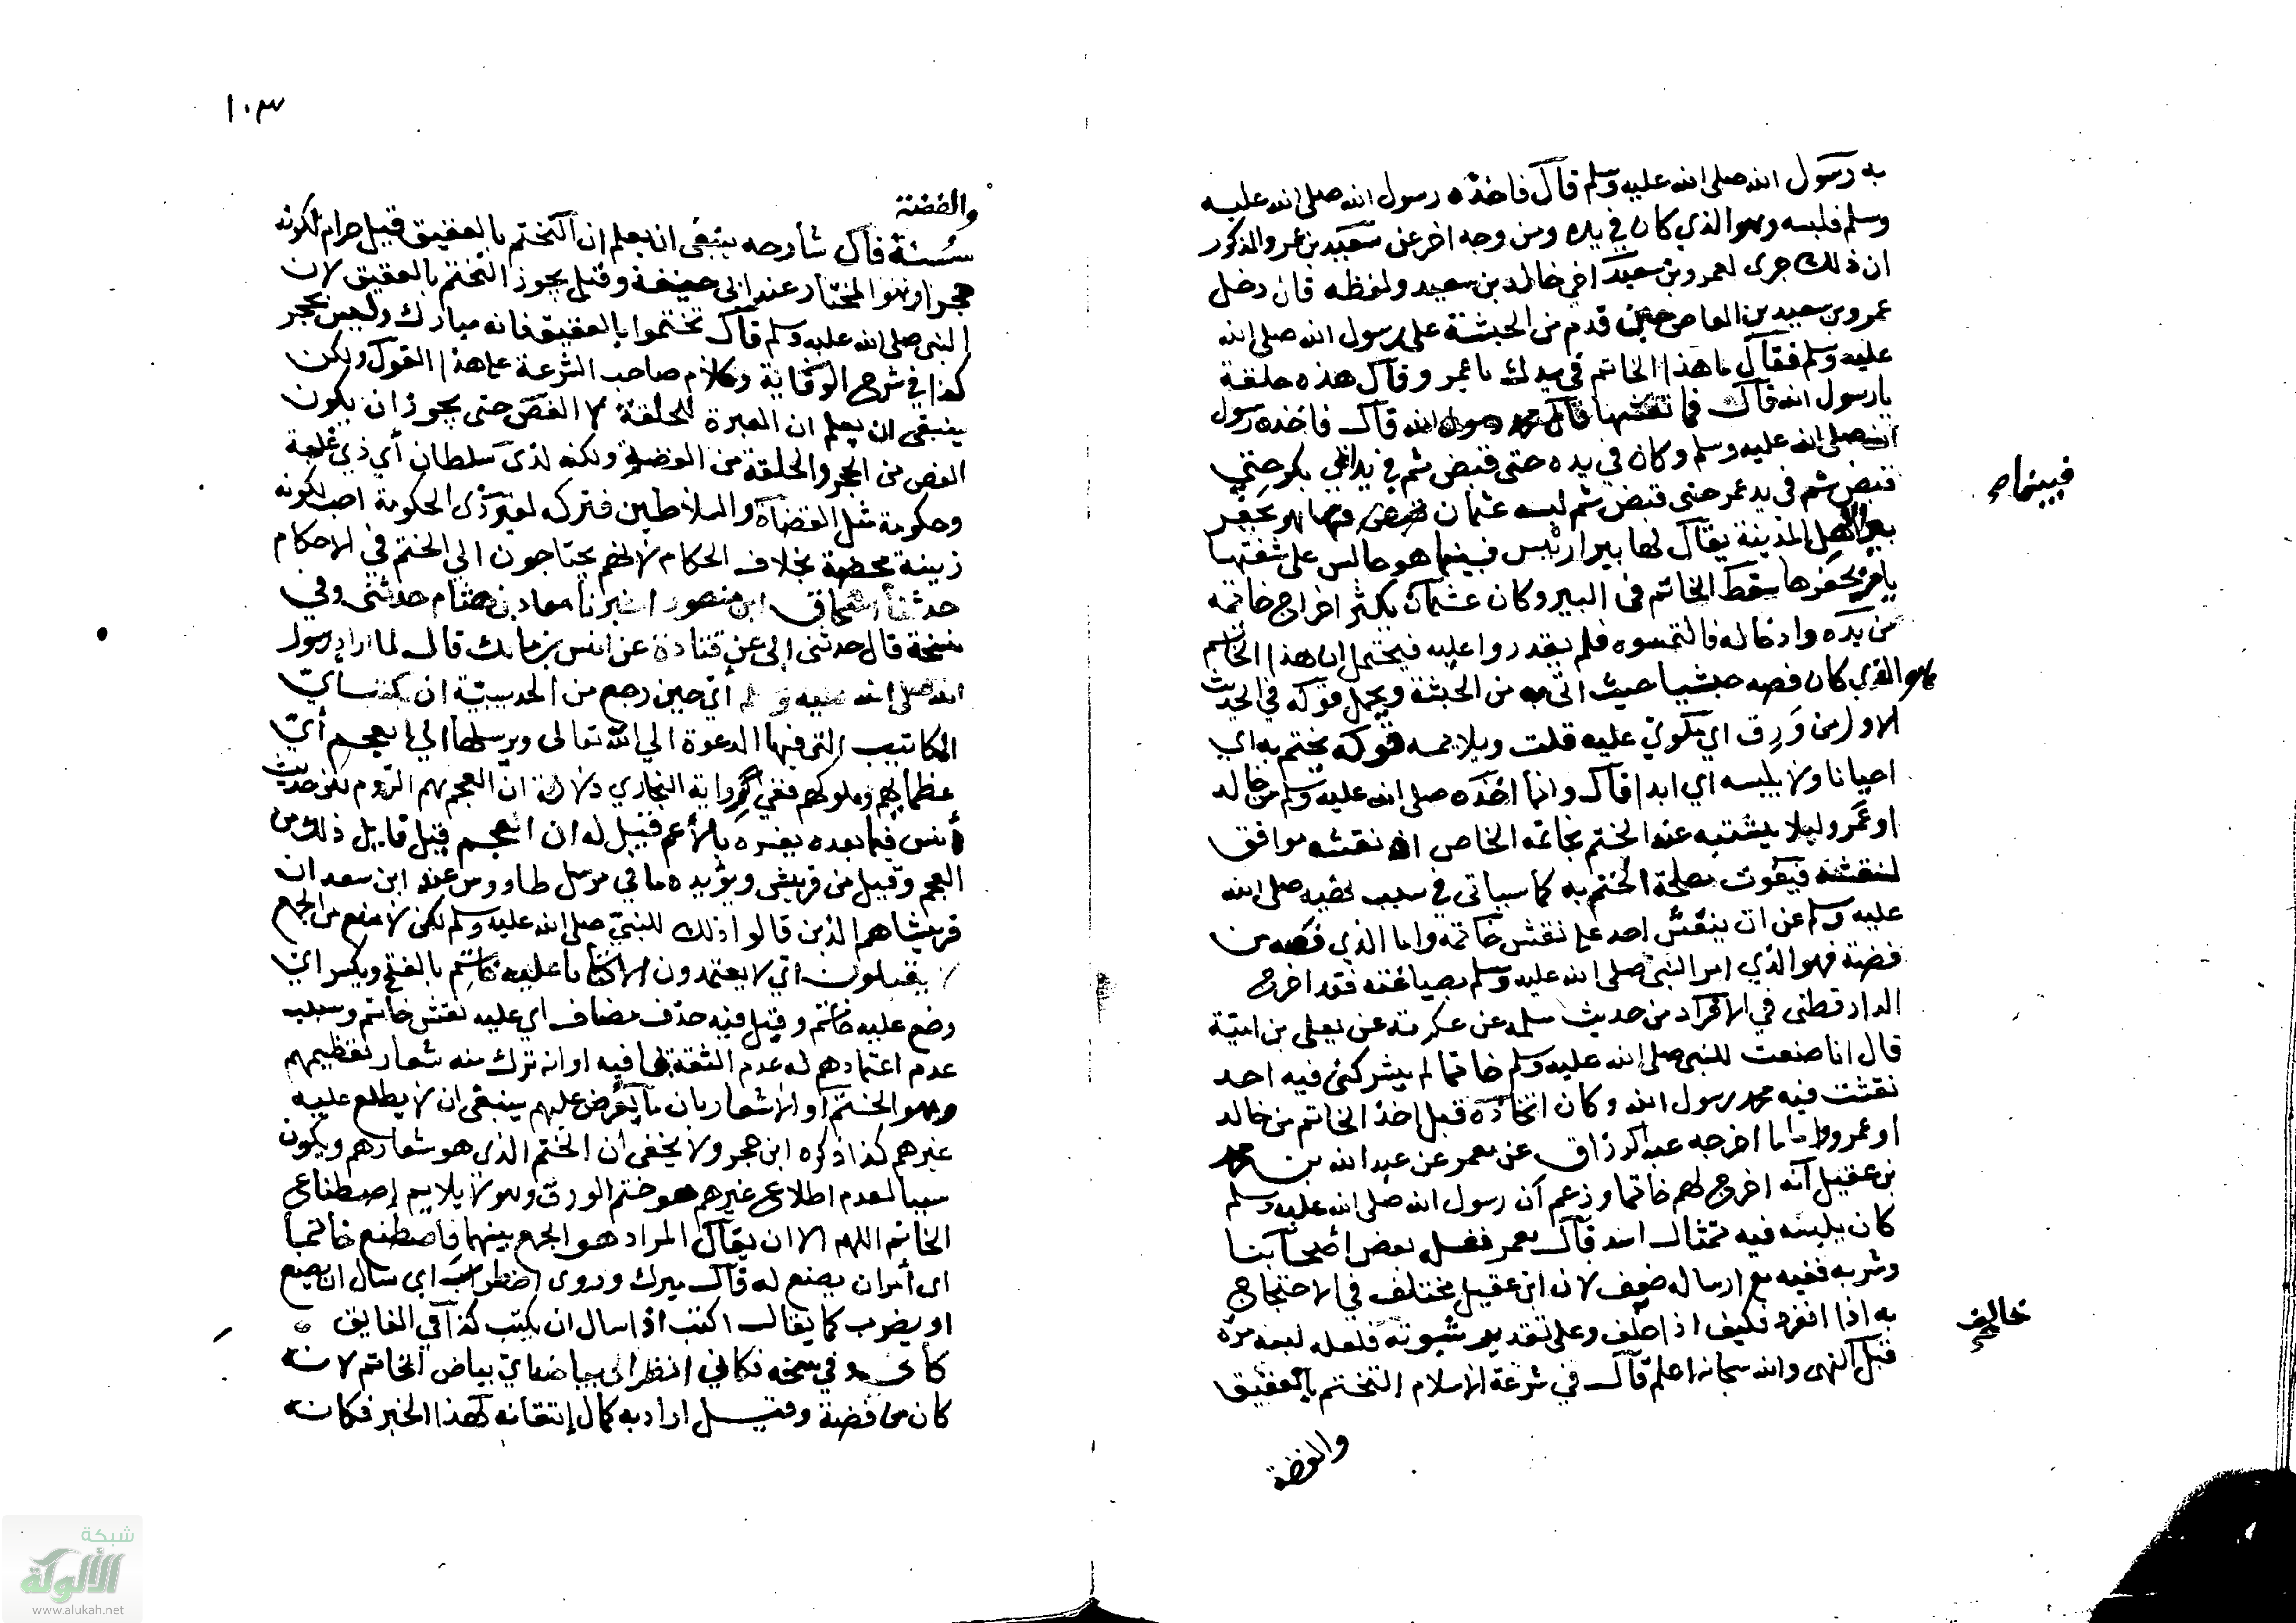 به رسول الله صلى الله عليه وسلم قال فاخذه رسول الله صلى الله عليه
وسلم فلبسه وهو الذي كان في يده ومن وجه اخر عن سعيد بن عمرو المذكور
ان ذلك جرى لعمرو بن سعيد اخي خالد بن سعيد ولفظه قال دخل
عمرو بن سعيد بن العاص حين قدم من الحبشة على رسول الله صلى الله
عليه وسلم فقال ما هذا الخاتم في يدك يا عمرو قال هذه حلقة
يا رسول الله قال فما نقشها قال محمد رسول الله قال فاخذه رسول
الله صلى الله عليه وسلم وكان في يده حتى قبض ثم في يد ابي بكر حتى
قبض ثم في يد عمر حتى قبض ثم لبسه عثمان فبينما هو يحفر
فبينما
بيرا لاهل المدينة يقال لها بير اريس فبينما هو جالس على شفتها
يامر بحفرها سقط الخاتم في البير وكان عثمان يكثر اخراج خاتمه
من يده وادخاله فالتمسوه فلم يقدروا عليه فيحتمل ان هذا الخاتم
هو الذي كان فصه حبشيا حيث اتى به من الحبشة ويحمل قوله في الحديث
الاول من ورق اي ملوي عليه قلت ويلايمه قوله يختم به اي
احيانا ولا يلبسه اي ابدا قال وانما اخذه صلى الله عليه وسلم من خالد
او عمرو ليلا يشتبه عند الختم بخاتمه الخاص اذ نقشه موافق
لنقشه فيفوت مصلحة الختم به كما سياتي في سبب نهيه صلى الله
عليه وسلم عن ان ينقش احد على نقش خاتمه واما الذي فصه من
فضة فهو الذي امر النبي صلى الله عليه وسلم بصياغته فقد اخرج
الدارقطني في الافراد من حديث سلمة عن عكرمة عن يعلى بن امية
قال انا صنعت للنبي صلى الله عليه وسلم خاتما لم يشركني فيه احد
نقشت فيه محمد رسول الله وكان اتخاذه قبل اخذ الخاتم من خالد
او عمرو واما ما اخرجه عبد الرزاق عن معمر عن عبد الله بن محمد
بن عقيل انه اخرج لهم خاتما وزعم ان رسول الله صلى الله عليه وسلم
كان يلبسه فيه تمثال اسد قال معمر فغسله بعض اصحابنا
وشربه ففيه مع ارساله ضعف لان ابن عقيل مختلف في الاحتجاج
به اذا انفرد فكيف اذا خالف وعلى تقدير ثبوته فلعله لبسه مرة
خالف
قبل النهي والله سبحانه اعلم قال في شرعة الاسلام التختم بالعقيق
والفضة
١٠٣
والفضة
سنة قال شارحه ينبغي ان يعلم ان التختم بالعقيق قيل حرام لكونه
حجرا وهو المختار عند ابي حنيفة وقيل يجوز التختم بالعقيق لان
النبي صلى الله عليه وسلم قال تختموا بالعقيق فانه مبارك وليس بحجر
كذا في شرح الوقاية وكلام صاحب الشرعة على هذا القول ولكن
ينبغي ان يعلم ان العبرة للحلقة لا الفص حتى يجوز ان يكون
الفص من الحجر والحلقة من الفضة ولكنه لذي سلطان أي ذي غلبة
وحكومة مثل القضاة والسلاطين فتركه لغير ذى الحكومة احب لكونه
زينة محضة بخلاف الحكام لانهم يحتاجون الى الختم في الاحكام
حدثنا اسحاق ابن منصور اخبرنا معاذ بن هشام حدثنى وفي
نسخة قال حدثنى ابي عن قتادة عن انس بن مالك قال لما اراد رسول
الله صلى الله عليه وسلم أي حين رجع من الحديبية ان يكتب أي
المكاتيب التي فيها الدعوة الى الله تعالى ويرسلها الى العجم أي
عظمائهم وملوكهم ففي رواية البخاري دلالة ان العجم هم الروم لكن حديث
أنس فيما بعده يفسره بالأعم فقيل له ان العجم قيل قايل ذلك من
العجم وقيل من قريش ويؤيده ما في مرسل طاووس عند ابن سعد ان
قريشا هم الذين قالوا ذلك للنبي صلى الله عليه وسلم لكن لا منع من الجمع
لا يقبلون اي لا يعتمدون الا كتابا عليه خاتم بالفتح ويكسر اي
وضع عليه خاتم وقيل فيه حذف مضاف اي عليه نقش خاتم وسبب
عدم اعتمادهم له عدم الثقة بما فيه او انه ترك منه شعار تعظيمهم
وهو الختم او الاشعار بان ما يعرض عليهم ينبغي ان لا يطلع عليه
غيرهم كذا ذكره ابن حجر ولا يخفى ان الختم الذي هو شعارهم ويكون
سببا لعدم اطلاع غيرهم هو ختم الورق وهو لا يلايم إصطناع
الخاتم اللهم الا ان يقال المراد هو الجمع بينهما فاصطنع خاتما
اى أمر ان يصنع له قال ميرك وروى اضطرب اي سال ان يصنع
او يضرب كما يقال اكتتب اذا سال ان يكتب كذا في الفايق
كاني وفي نسخة فكاني انظر الى بياضه اي بياض الخاتم لانه
كان من فضة وقيل اراد به كمال إتقانه لهذا الخبر فكانه
شبكة
الألوكة
www.alukah.net